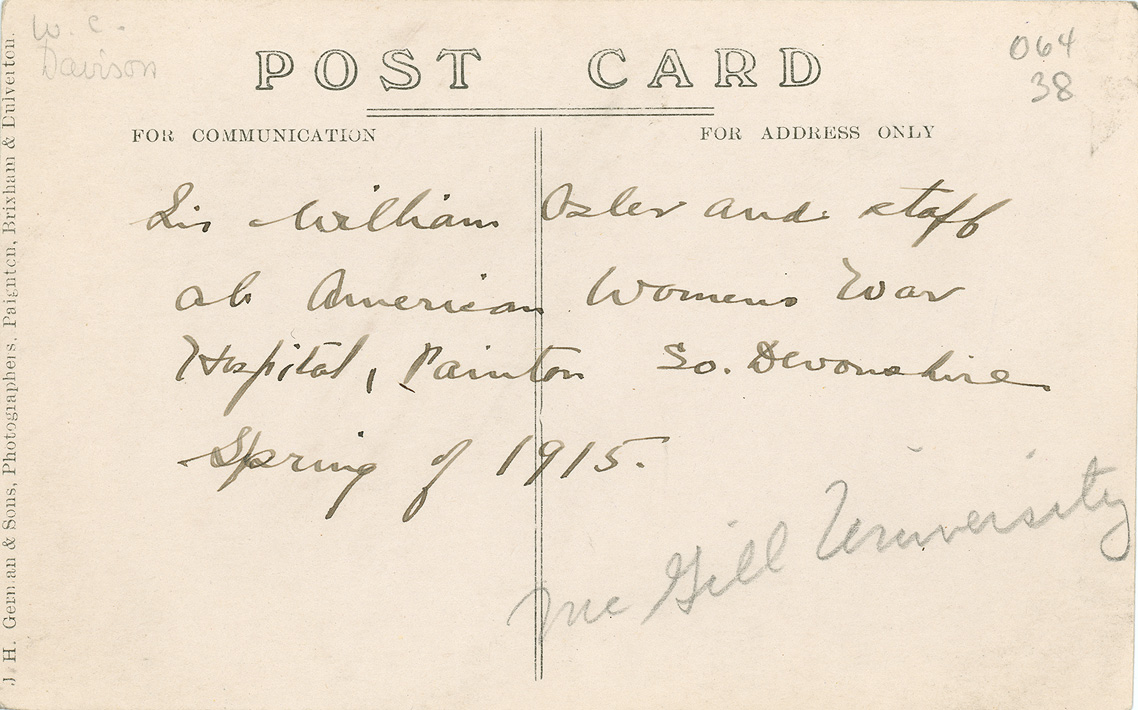 W. C.
Davison
064
38
POST CARD
FOR COMMUNICATION
FOR ADDRESS ONLY
Sir William Osler and staff
at American Womens War
Hospital, Painton So. Devonshire
Spring of 1915.
McGill University
J. H. German & Sons, Photographers, Paignton, Brixham & Dulverton.